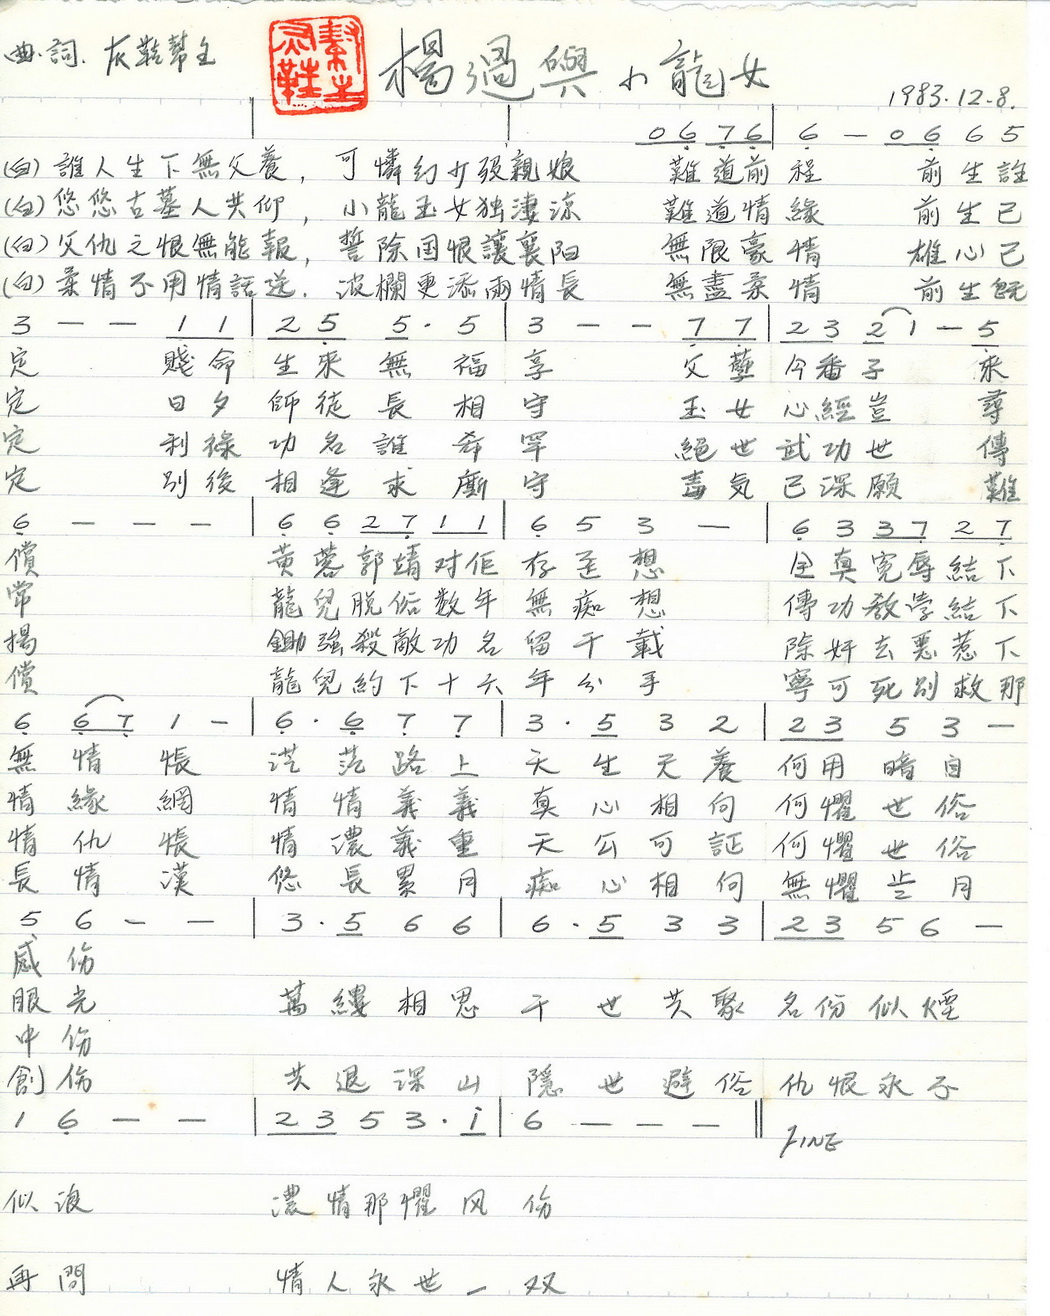 曲.詞.灰鞋幫主 楊過與小龍女 1983.12.8.
0 6 7 6 | 6 — 0 6 6 5
(白) 誰人生下無父養, 可憐幼少發親娘 難道前程 前生註
(白) 悠悠古墓人共仰, 小龍玉女独淒涼 難道情緣 前生已
(白) 父仇之恨無能報, 誓除国恨讓襄阳 無限豪情 雄心已
(白) 柔情不用情話送. 波欄更添兩情長 無盡柔情 前生既
3 — — 1 1 | 2 5 5 · 5 | 3 — — 7 7 | 2 3 2 1 — 5
定 賤命 生來無福 享 父孽 今番子 來
定 日夕 師徒長相 守 玉女 心經豈 尋
定 利祿 功名誰希 罕 絕世 武功世 傳
定 別後 相逢求廝 守 毒気 已深願 難
6 — — — | 6 6 2 7 1 1 | 6 5 3 — | 6 3 3 7 2 7
償 黃蓉郭靖对佢 存歪想 全真冤辱結下
常 龍兒脱俗数年 無痴想 傳功教学結下
揚 鋤強殺敵功名 留千載 除奸去惡惹下
償 龍兒約下十六 年分手 寧可死別救那
6 6 7 1 — | 6 · 6 7 7 | 3 · 5 3 2 | 2 3 5 3 —
無情悵 茫茫路上 天生天養 何用暗自
情緣網 情情義義 真心相向 何懼世俗
情仇悵 情濃義重 天公可証 何懼世俗
長情漢 悠長累月 痴心相向 無懼歲月
5 6 — — | 3 · 5 6 6 | 6 · 5 3 3 | 2 3 5 6 —
感伤
眼光 萬縷相思 千世共聚 名份似煙
中伤
創伤 共退深山 隱世避俗 仇恨永不
1 6 — — | 2 3 5 3 · i | 6 — — — ‖ FINE
似浪 濃情那懼风 伤
再問 情人永世一 双